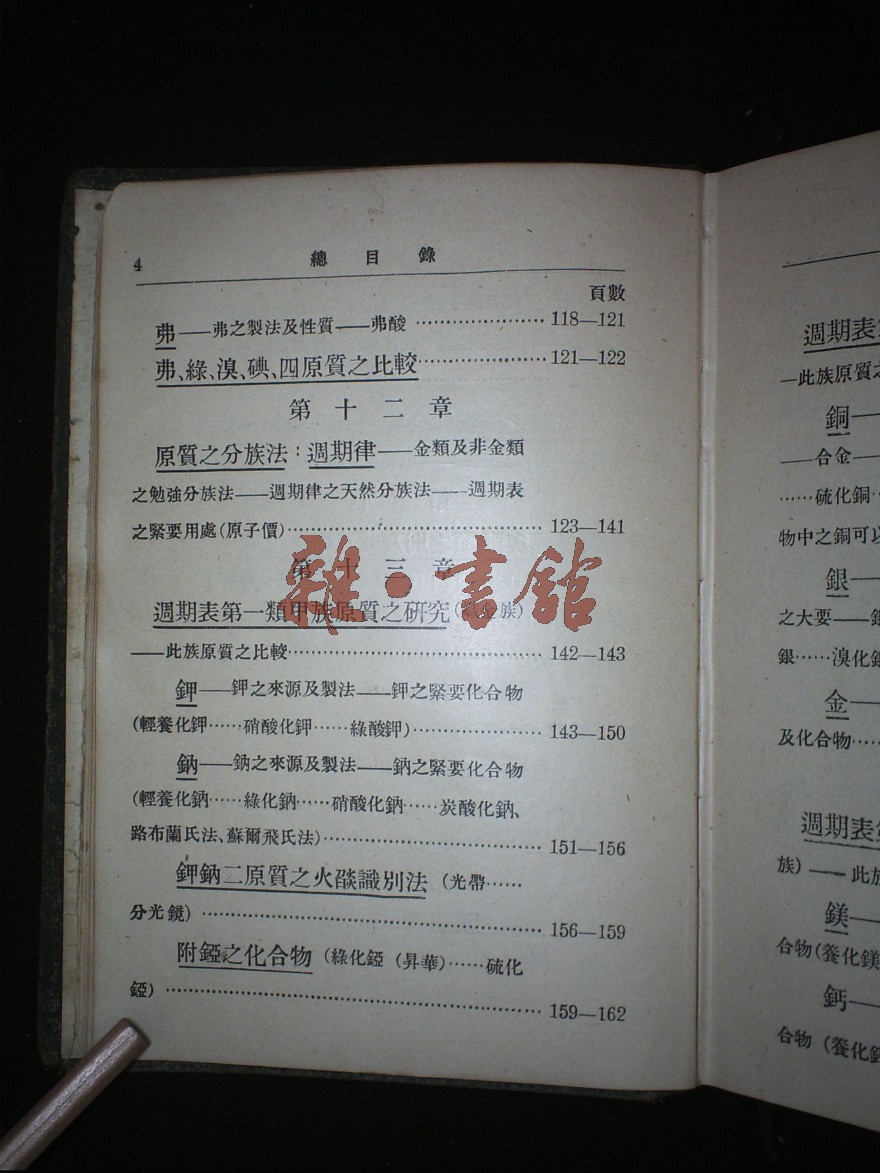 4
總目錄
頁數
弗——弗之製法及性質——弗酸 …………… 118—121
弗、綠、溴、碘、四原質之比較…………… 121—122
第十二章
原質之分族法：週期律——金類及非金類
之勉強分族法——週期律之天然分族法——週期表
之緊要用處(原子價)…………………………… 123—141
第十三章
週期表第一類甲族原質之研究
——此族原質之比較…………………………… 142—143
鉀——鉀之來源及製法——鉀之緊要化合物
(輕養化鉀……硝酸化鉀……綠酸鉀)…………… 143—150
鈉——鈉之來源及製法——鈉之緊要化合物
(輕養化鈉……綠化鈉……硝酸化鈉……炭酸化鈉、
路布蘭氏法、蘇爾飛氏法)……………………… 151—156
鉀鈉二原質之火燄識別法 (光帶……
分光鏡) …………………………………… 156—159
附錏之化合物 (綠化錏 (昇華)……硫化
錏) ………………………………………… 159—162
雜·書館
週期表
—此族原質
銅—
——合金—
……硫化銅
物中之銅可以
銀—
之大要——
銀……溴化銀
金—
及化合物……
週期表
族) —— 此族
鎂—
合物(養化鎂
鈣—
合物 (養化